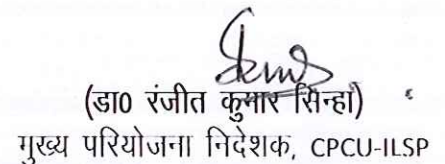 (डा0 रंजीत कुमार सिन्हा)
मुख्य परियोजना निदेशक, CPCU-ILSP